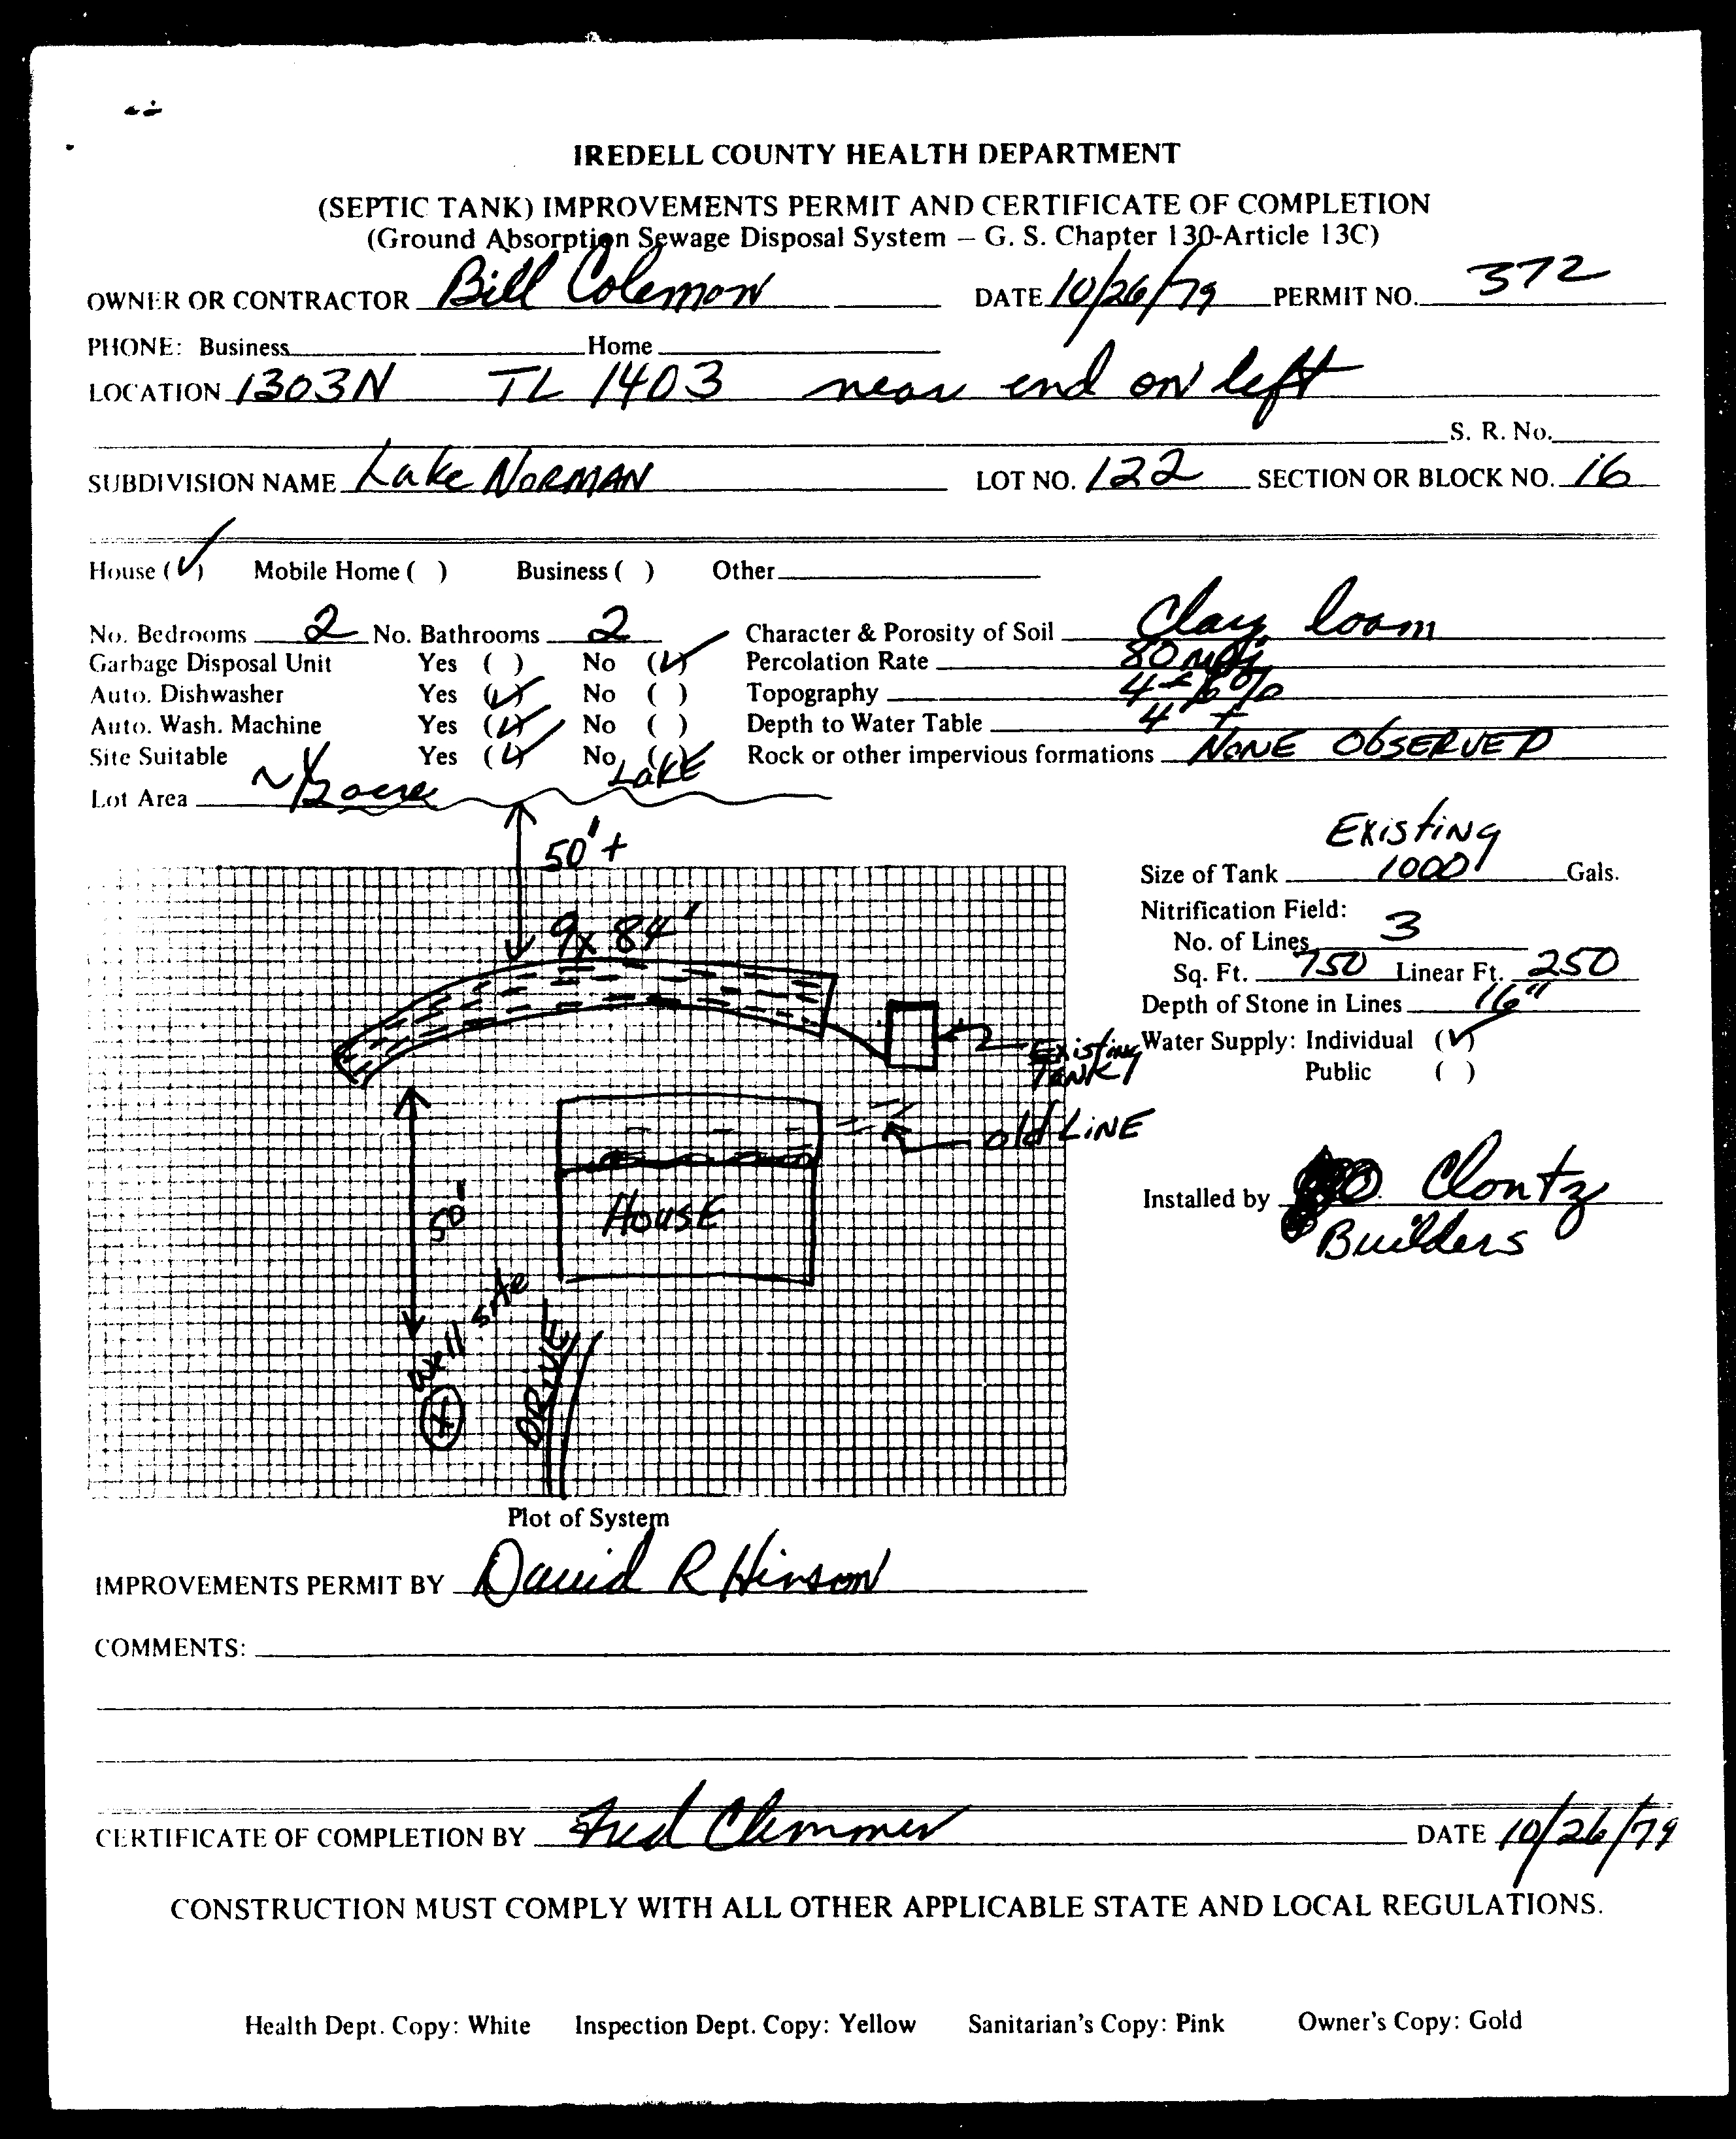 IREDELL COUNTY HEALTH DEPARTMENT
(SEPTIC TANK) IMPROVEMENTS PERMIT AND CERTIFICATE OF COMPLETION
(Ground Absorption Sewage Disposal System – G. S. Chapter 130-Article 13C)
OWNER OR CONTRACTOR Bill Coleman DATE 10/26/79 PERMIT NO. 372
PHONE: Business Home
LOCATION 1303N TL 1403 near end on left
S. R. No.
SUBDIVISION NAME Lake NORMAN LOT NO. 122 SECTION OR BLOCK NO. 16
House (✓) Mobile Home ( ) Business ( ) Other
No. Bedrooms 2 No. Bathrooms 2 Character & Porosity of Soil Clay loam
Garbage Disposal Unit Yes ( ) No (✓) Percolation Rate 80 mpi
Auto. Dishwasher Yes (✓) No ( ) Topography
Auto. Wash. Machine Yes (✓) No ( ) Depth to Water Table 4' +
Site Suitable Yes (✓) No ( ) Rock or other impervious formations NONE OBSERVED
Lot Area ~ 1/2 acre LAKE
50'+
9x 84'
Existing
Size of Tank 1000 Gals.
Nitrification Field:
No. of Lines 3
Sq. Ft. 750 Linear Ft. 250
Depth of Stone in Lines 16"
Water Supply: Individual (✓)
Public ( )
Existing
TANK
old LINE
HOUSE
50'
well site
DRIVE
Installed by Clontz
Builders
Plot of System
IMPROVEMENTS PERMIT BY David R Hinson
COMMENTS:
CERTIFICATE OF COMPLETION BY Fred Clemmer DATE 10/26/79
CONSTRUCTION MUST COMPLY WITH ALL OTHER APPLICABLE STATE AND LOCAL REGULATIONS.
Health Dept. Copy: White Inspection Dept. Copy: Yellow Sanitarian's Copy: Pink Owner's Copy: Gold